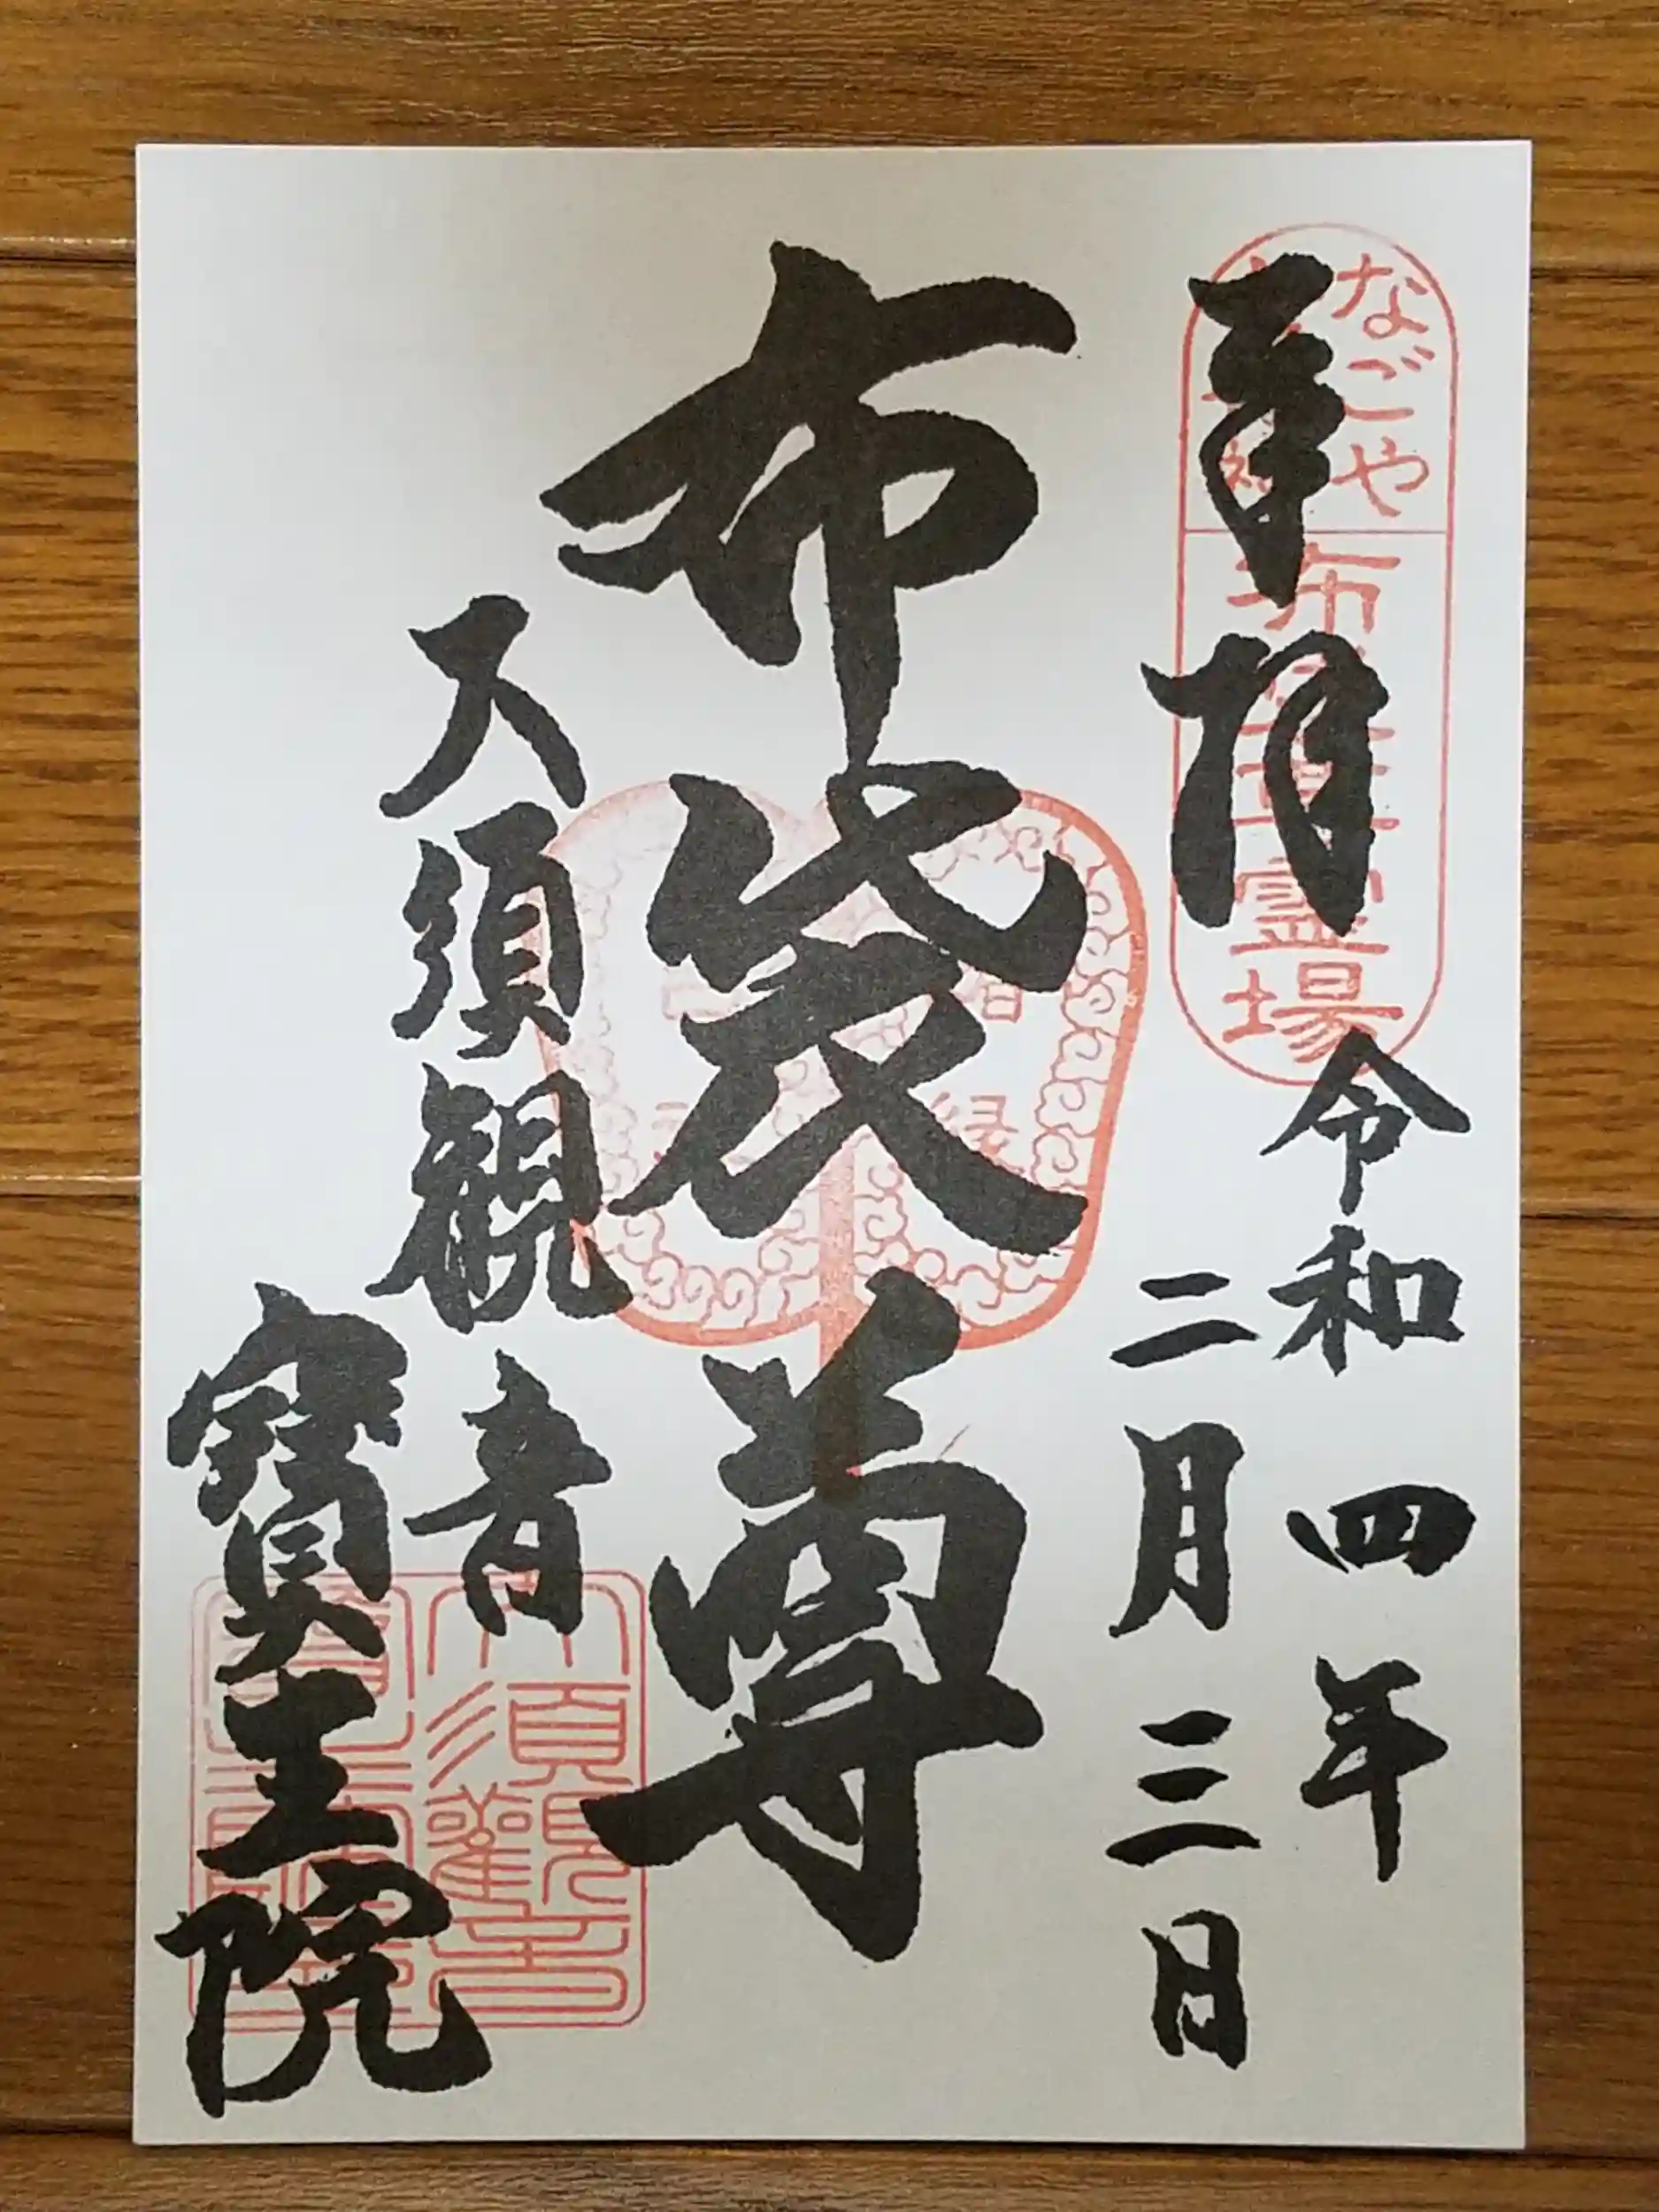 なごや
布袋尊霊場
奉拝
令和四年
二月三日
布袋尊
大須観音
寳生院
大須觀音